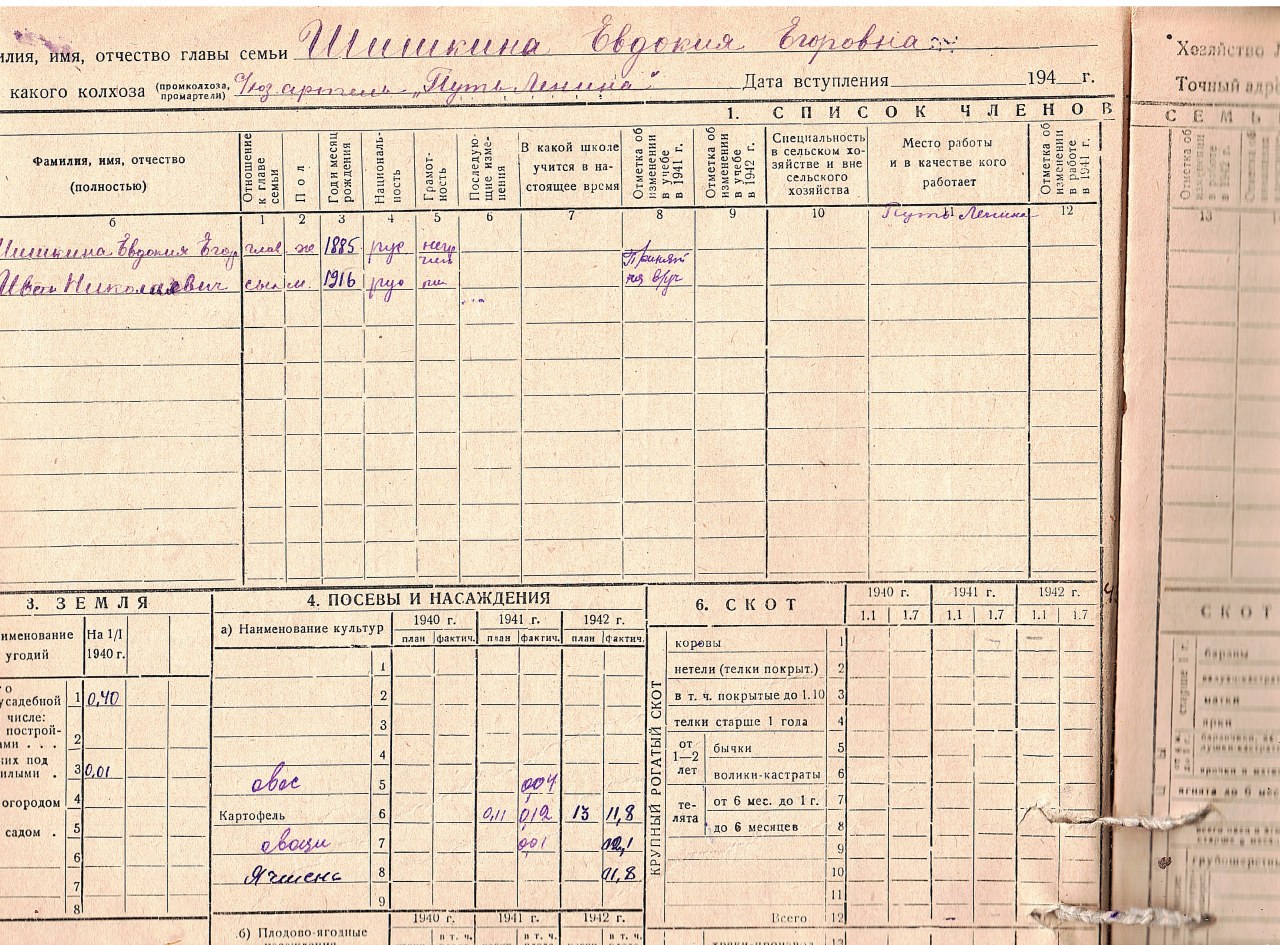 илия, имя, отчество главы семьи Шишкина Евдокия Егоровна
какого колхоза (промколхоза, промартели) артель „Путь Ленина" Дата вступления 194 г.
1. СПИСОК ЧЛЕНОВ
Фамилия, имя, отчество (полностью)
Отношение к главе семьи
Пол
Год и месяц рождения
Националь-ность
Грамот-ность
Последую-щие изме-нения
В какой школе учится в на-стоящее время
Отметка об изменении в учебе в 1941 г.
Отметка об изменении в учебе в 1942 г.
Специальность в сельском хо-зяйстве и вне сельского хозяйства
Место работы и в качестве кого работает
Отметка об изменении в работе в 1941 г.
б 1 2 3 4 5 6 7 8 9 10 11 12
Путь Ленина
Шишкина Евдокия Егор глав ж 1885 рус негр
Иван Николаевич сын м. 1916 рус
3. ЗЕМЛЯ
именование угодий
На 1/I 1940 г.
усадебной 1 0,40
числе:
построй-
ами . . . 2
них под
илыми . 3 0,01
огородом 4
садом . 5
6
7
8
4. ПОСЕВЫ И НАСАЖДЕНИЯ
а) Наименование культур
1940 г. 1941 г. 1942 г.
план фактич. план фактич. план фактич.
1
2
3
4
овес 5 004
Картофель 6 0,11 012 13 11,8
овощи 7 001
Ячмень 8
9
1940 г. 1941 г. 1942 г.
б) Плодово-ягодные
насаждения
в т. ч. в т. ч. в т. ч.
6. СКОТ
1940 г. 1941 г. 1942 г.
1.1 1.7 1.1 1.7 1.1 1.7
КРУПНЫЙ РОГАТЫЙ СКОТ
коровы 1
нетели (телки покрыт.) 2
в т. ч. покрытые до 1.10 3
телки старше 1 года 4
от 1—2 лет
бычки 5
волики-кастраты 6
те-лята
от 6 мес. до 1 г. 7
до 6 месяцев 8
9
10
11
Всего 12
13
Хозяйство
Точный адр
СЕМЬ
Отметка об
13
СКОТ
старше 1 г.
бараны
матки
ярки
ягнята до 6 мес